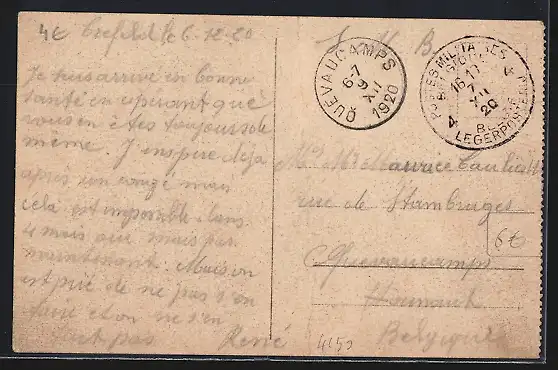 4€ Crefeld le 6-12-20
Je suis arrivé en bonne
santé en espérant que
vous en êtes toujours de
même. J'inspire déja
après un congé mais
cela est impossible dans
4 mois oui mais pas
maintenant. Mais on
est prié de ne pas s'en
faire et on ne s'en
fait pas René
S. M. B.
QUEVAUCAMPS
6-7
9
XII
1920
POSTES MILITAIRES
BELGIQUE 4
16-17
7
XII
20
4 BELGIE
LEGERPOSTERIJ
Mr Maurice
rue de Stambruges
6€
Quevaucamps
Hainaut
Belgique